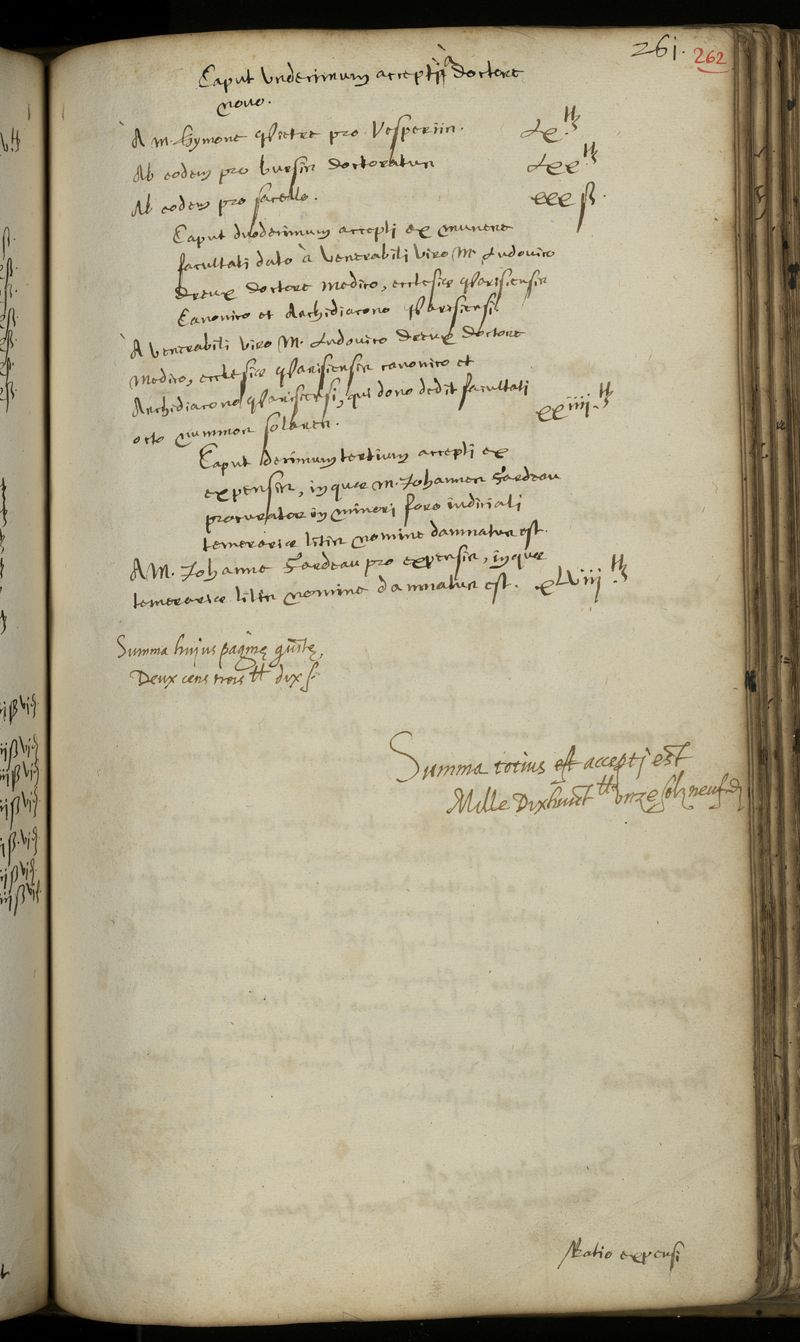 261.
262
Caput undecimum accepti à doctore
novo.
A M. Symone Pietre pro Vesperiis. lx tt
Ab eodem pro bursis doctoratus lxx tt
Ab eodem pro sacello. xxx ß.
Caput duodecimum accepti ex munere
facultati dato à Venerabili viro M. Ludovico
Dreux doctore medico, ecclesiæ Parisiensis
Canonico et Archidiacono Parisiensi
A Venerabili viro M. Ludovico Dreux doctore
Medico, ecclesiæ Parisiensis canonico et
Archidiacono Parisiensi, qui dono dedit facultati
octo nummos solares. xxiiii tt
Caput decimumtertium accepti ex
expensis, in quas M. Johannes Gardeau
procurator in minori foro iudiciali
temerariæ litis nomine damnatus est.
A M. Johanne Gardeau pro expensis, in quas
temerariæ litis nomine damnatus est. xlviii tt
Summa hujus paginę
Deux cens trois tt dix s.
Summa totius est accepti est
Mille Dixhuict tt unze solz neuf d
Ratio expensi